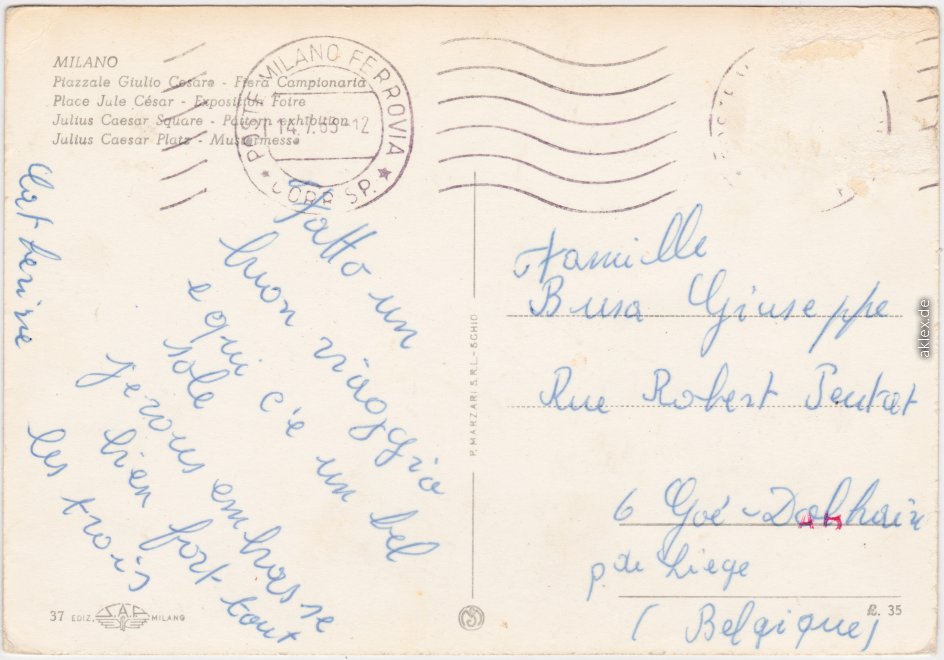 MILANO
Piazzale Giulio Cesare - Fiera Campionaria
Place Jule César - Exposition Foire
Julius Caesar Square - Pattern exhibition
Julius Caesar Platz - Mustermesse
POSTE MILANO FERROVIA
14.7.63-12
CORR. SP.
Fatto un
buon viaggio
e qui c'è un bel
sole
je vous embrasse
bien fort tout
les trois
Catherine
P. MARZARI S.R.L. - SCHIO
Famille
Busa Giuseppe
Rue Robert Pentat
6 Goé-Dolhain
p. de Liege
(Belgique)
37 EDIZ. S.A.F. MILANO
£. 35
aklex.de